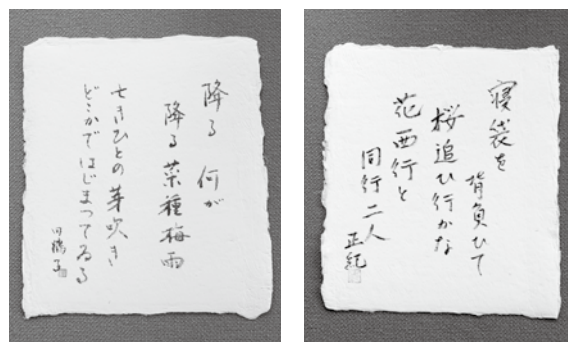 降る 何が
降る菜種梅雨
亡きひとの芽吹き
どこかではじまつてゐる
寝袋を
背負ひて
桜追ひ行かな
花西行と
同行二人
正紀